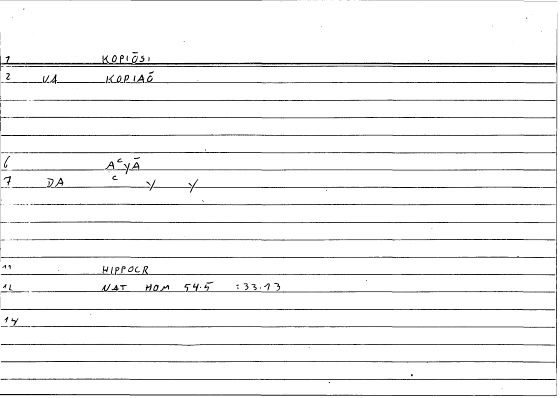 1 KOPIŌSI
2 VA KOPIAŌ
6 AᶜYĀ
7 DA ᶜ Y Y
11 HIPPOCR
12 NAT HOM 54.5 :33.13
14